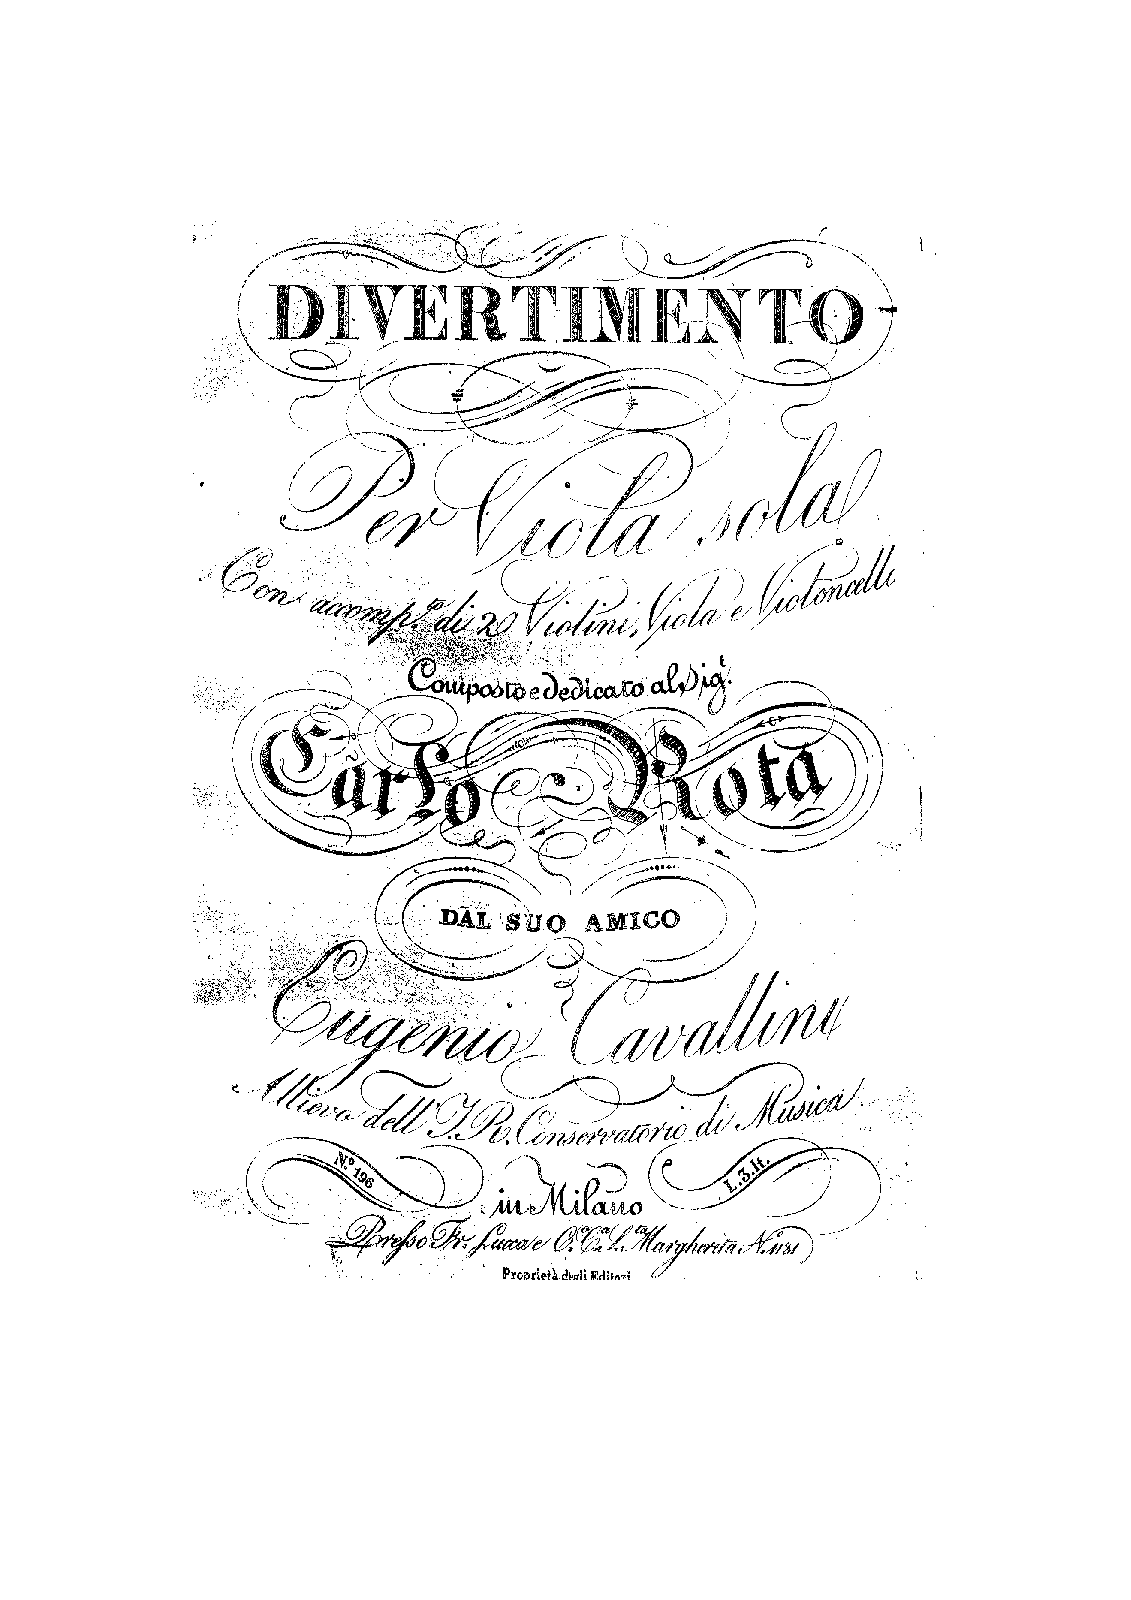 DIVERTIMENTO
Per Viola sola
Con accomp.to di 2 Violini, Viola e Violoncello
Composto e dedicato al Sig.r
Carlo Rota
DAL SUO AMICO
Eugenio Cavallini
Allievo dell' I. R. Conservatorio di Musica
N.º 196
L. 3. It.
in Milano
Presso Fr. Lucca e Margherita N. 1131
Proprietà degli Editori